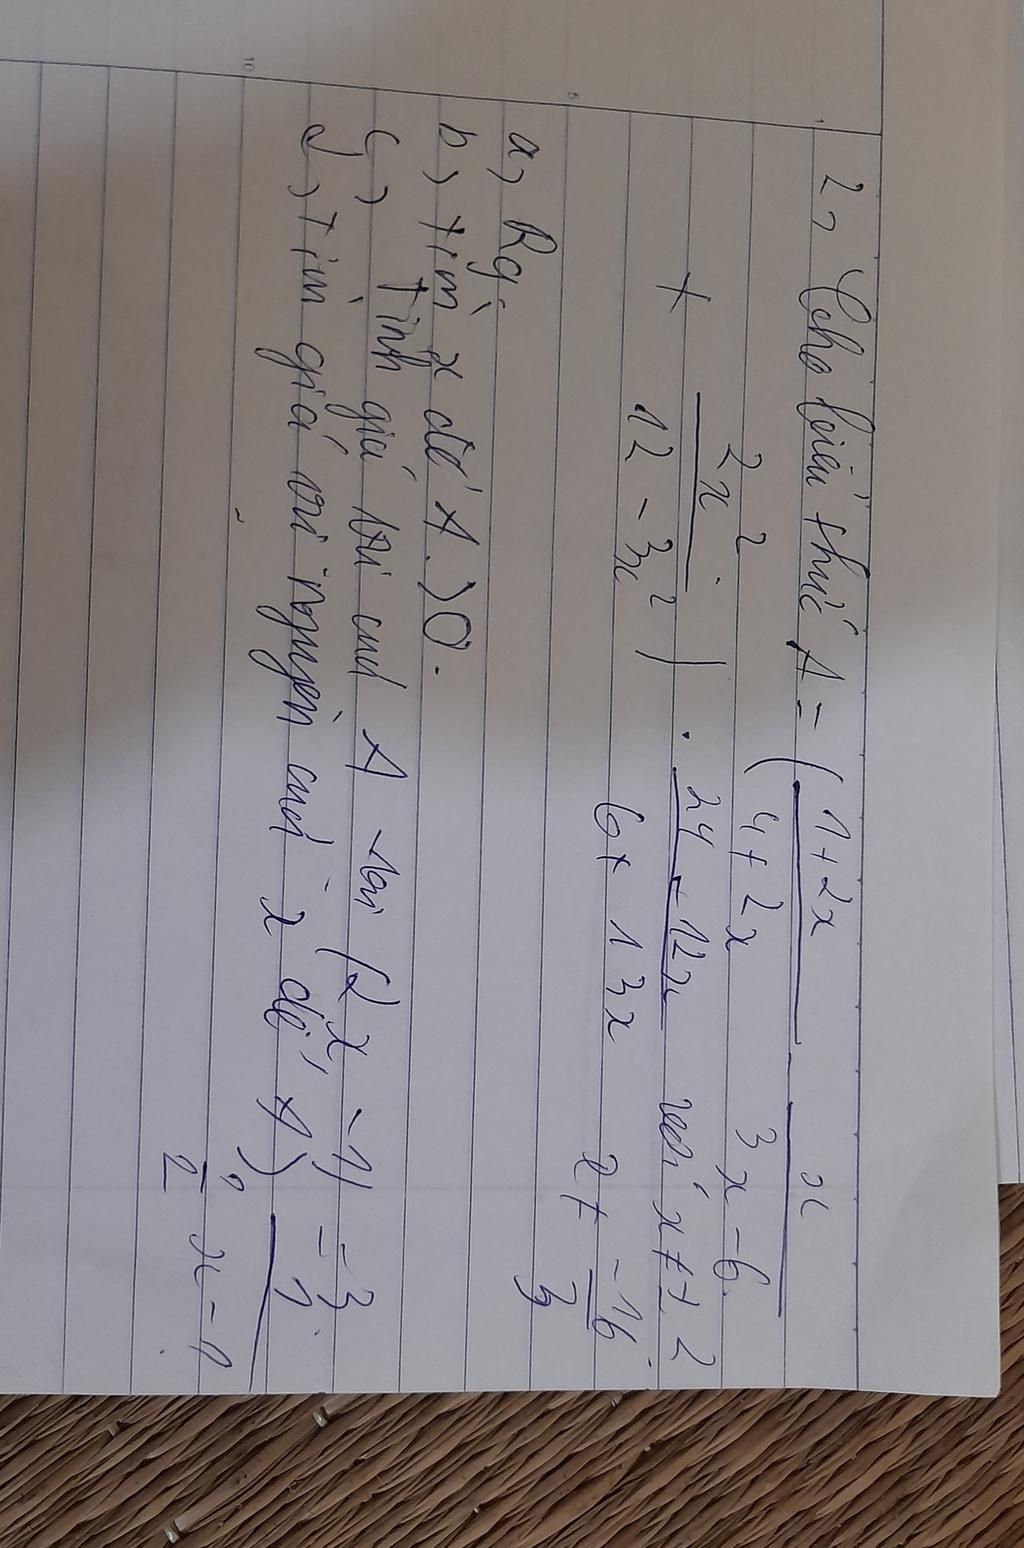 2, Cho biểu thức A = ( 1+2x / 4+2x - x / 3x-6
+ 2x² / 12-3x² ) . 24-12x / 6+13x với x ≠ ± 2
x ≠ -16/3
a, Rg.
b, tìm x để A > 0.
c, Tính giá trị của A tại |2x-1| = 3
d, tìm giá trị nguyên của x để A > 1 / ½x-1
1
5
10